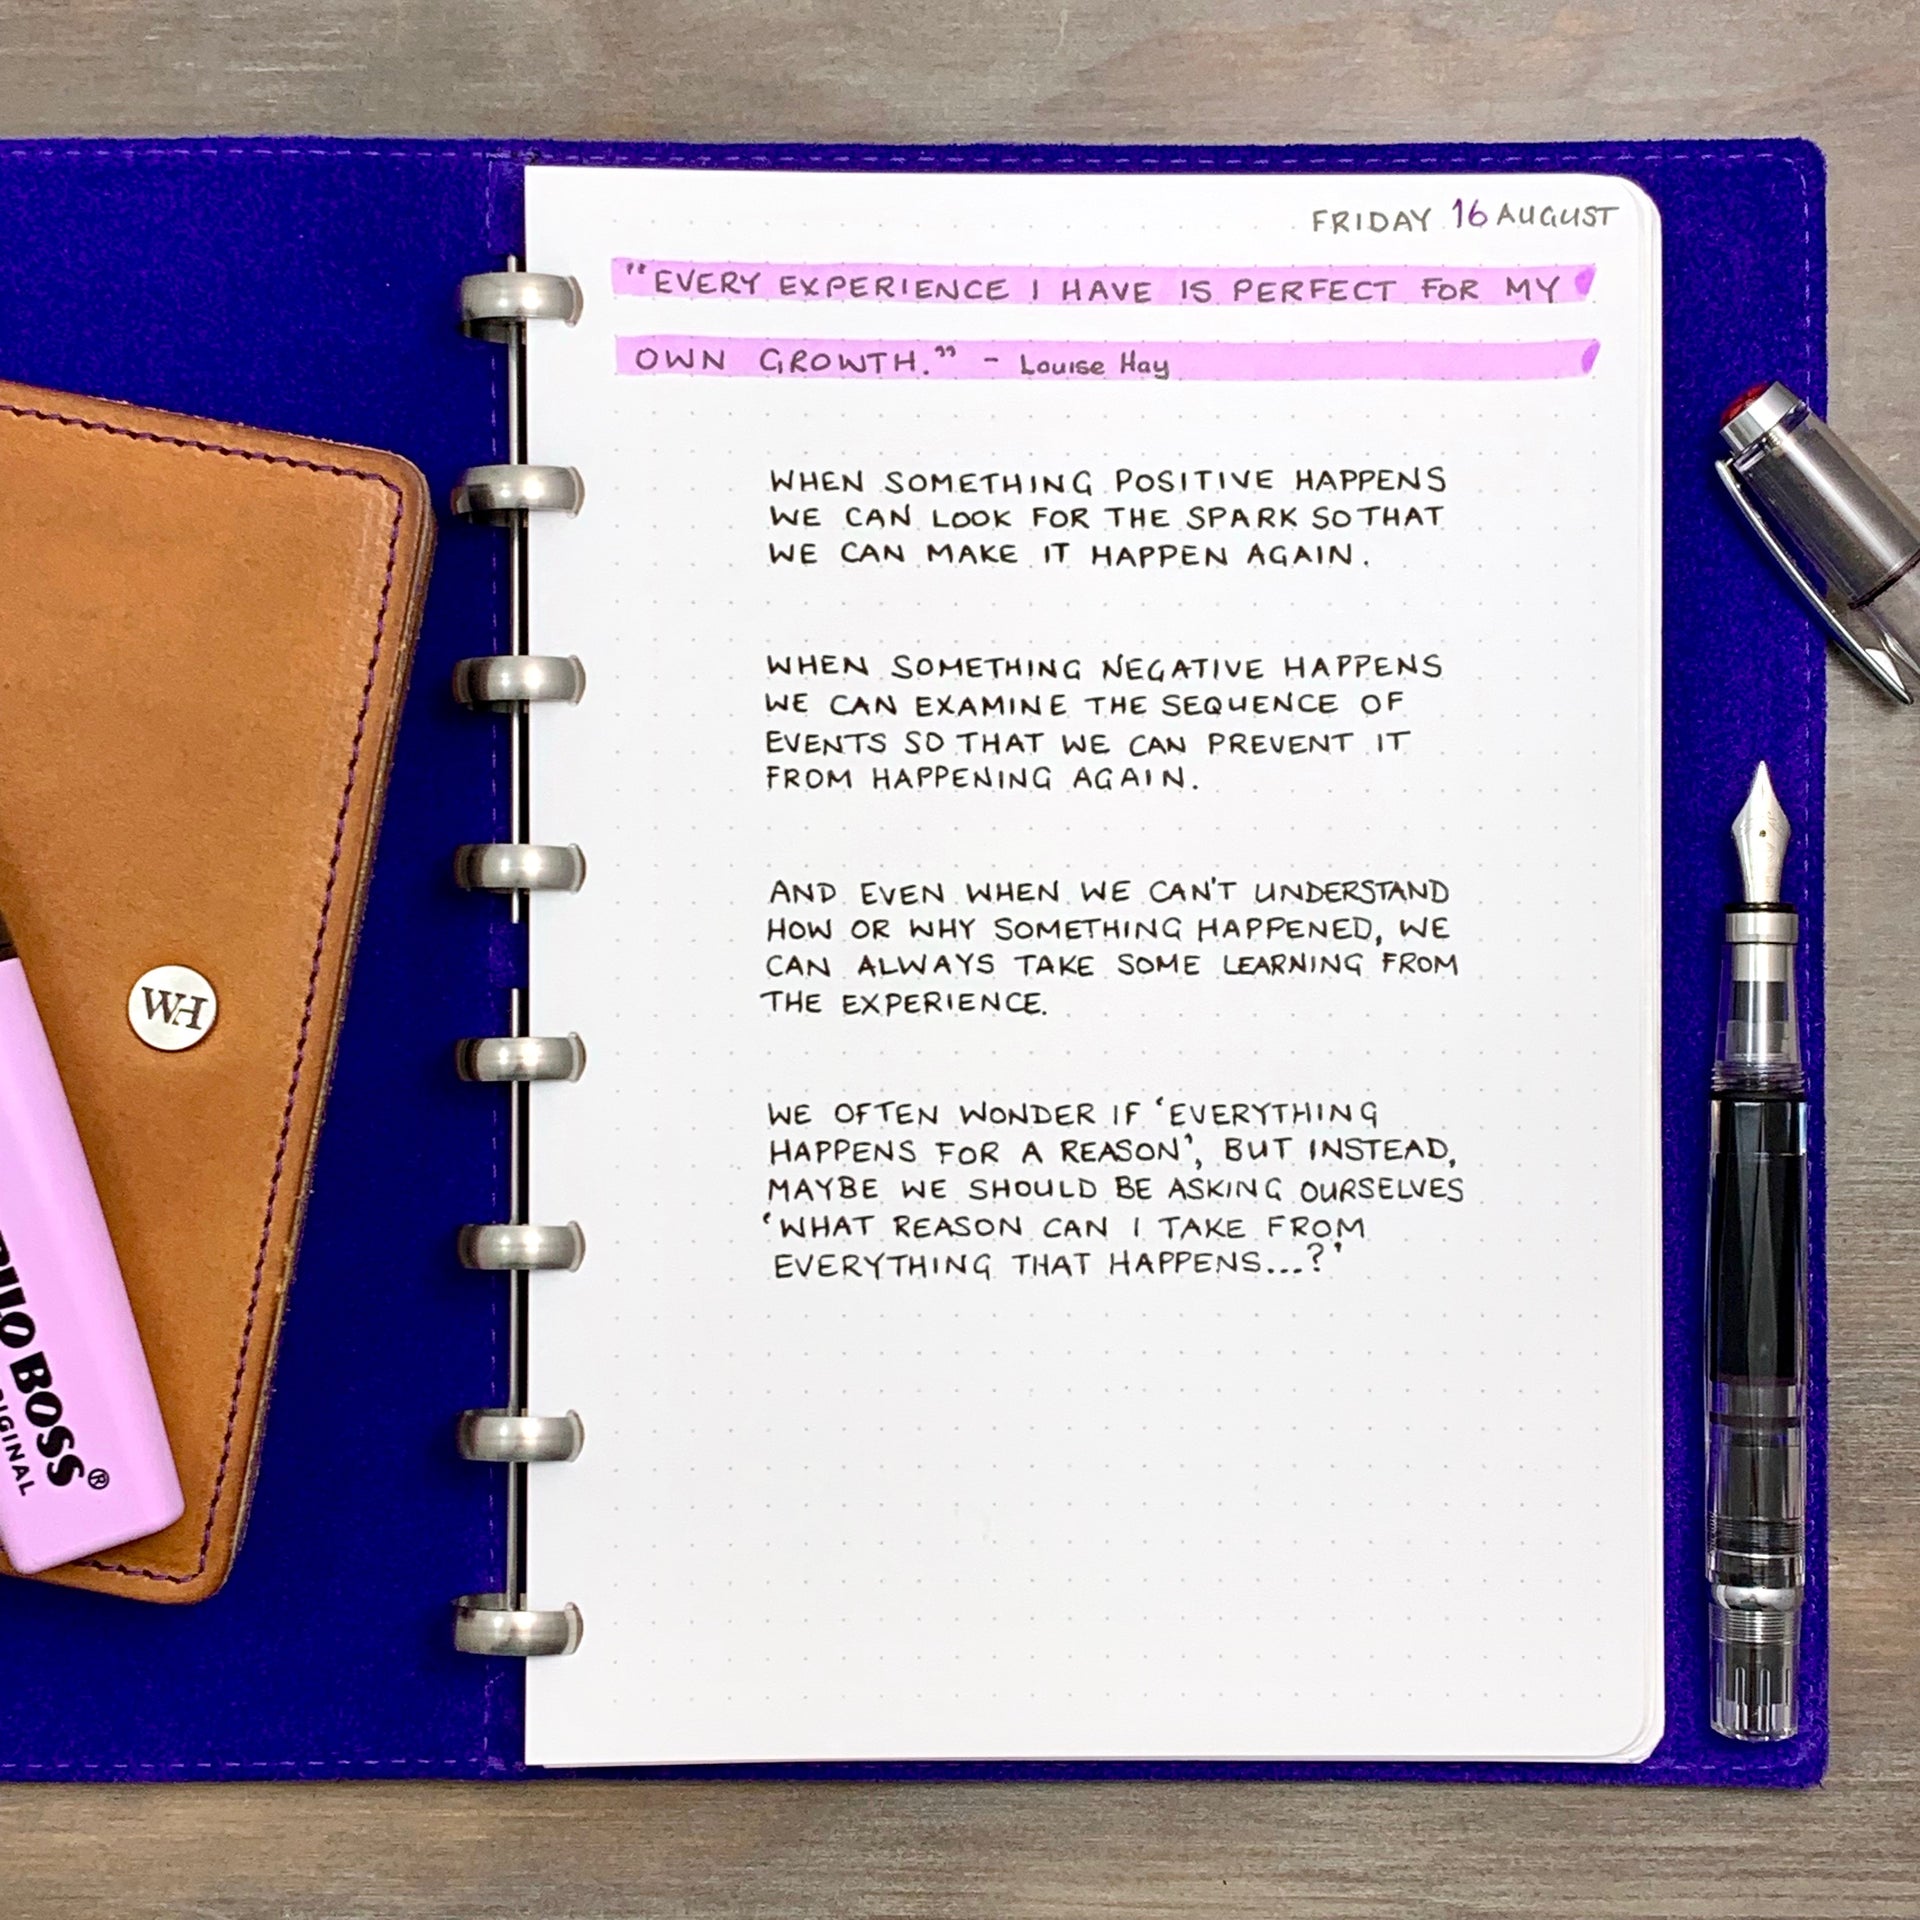 FRIDAY 16 AUGUST
"EVERY EXPERIENCE I HAVE IS PERFECT FOR MY
OWN GROWTH." - Louise Hay
WHEN SOMETHING POSITIVE HAPPENS
WE CAN LOOK FOR THE SPARK SO THAT
WE CAN MAKE IT HAPPEN AGAIN.
WHEN SOMETHING NEGATIVE HAPPENS
WE CAN EXAMINE THE SEQUENCE OF
EVENTS SO THAT WE CAN PREVENT IT
FROM HAPPENING AGAIN.
AND EVEN WHEN WE CAN'T UNDERSTAND
HOW OR WHY SOMETHING HAPPENED, WE
CAN ALWAYS TAKE SOME LEARNING FROM
THE EXPERIENCE.
WE OFTEN WONDER IF 'EVERYTHING
HAPPENS FOR A REASON', BUT INSTEAD,
MAYBE WE SHOULD BE ASKING OURSELVES
'WHAT REASON CAN I TAKE FROM
EVERYTHING THAT HAPPENS...?'
WH
BOSS®